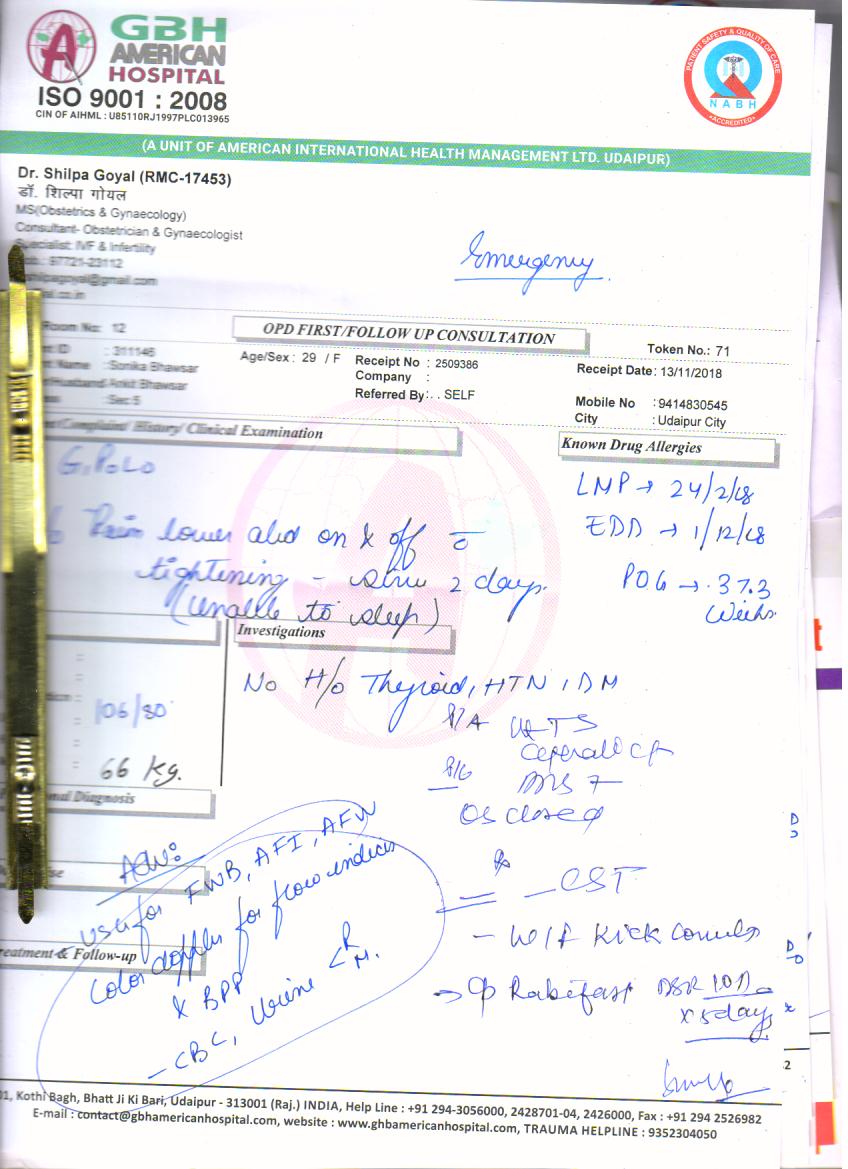 GBH
AMERICAN
HOSPITAL
ISO 9001 : 2008
CIN OF AIHML : U85110RJ1997PLC013965
PATIENT SAFETY & QUALITY OF CARE
NABH
ACCREDITED
(A UNIT OF AMERICAN INTERNATIONAL HEALTH MANAGEMENT LTD. UDAIPUR)
Dr. Shilpa Goyal (RMC-17453)
डॉ. शिल्पा गोयल
MS(Obstetrics & Gynaecology)
Consultant- Obstetrician & Gynaecologist
Specialist: IVF & Infertility
97721-23112
Emergency
Room No: 12
OPD FIRST/FOLLOW UP CONSULTATION
Token No.: 71
ID : 311146
Age/Sex : 29 / F
Receipt No : 2509386
Receipt Date: 13/11/2018
Name : Sonika Bhawsar
Company :
Husband-Ankit Bhawsar
Referred By: . . SELF
Mobile No : 9414830545
: Sec 5
City : Udaipur City
Complaint/ History/ Clinical Examination
Known Drug Allergies
G1P0L0
LMP → 24/2/18
EDD → 1/12/18
Pain lower abd on & off c̄
tightening - since 2 days.
(unable to sleep)
POG → 37.3
Weeks
Investigations
No H/o Thyroid, HTN, DM
106/80
P/A UTTS
66 Kg.
Os closed
Diagnosis
Adv:
USG for FWB, AFI, AFW
Color doppler for flow indices
& BPP
- CBC, Urine R
M.
Treatment & Follow-up
- CST
- W/f Kick Counts
→ Rabifast DSR 1OD
x 5 days
01, Kothi Bagh, Bhatt Ji Ki Bari, Udaipur - 313001 (Raj.) INDIA, Help Line : +91 294-3056000, 2428701-04, 2426000, Fax : +91 294 2526982
E-mail : contact@gbhamericanhospital.com, website : www.ghbamericanhospital.com, TRAUMA HELPLINE : 9352304050